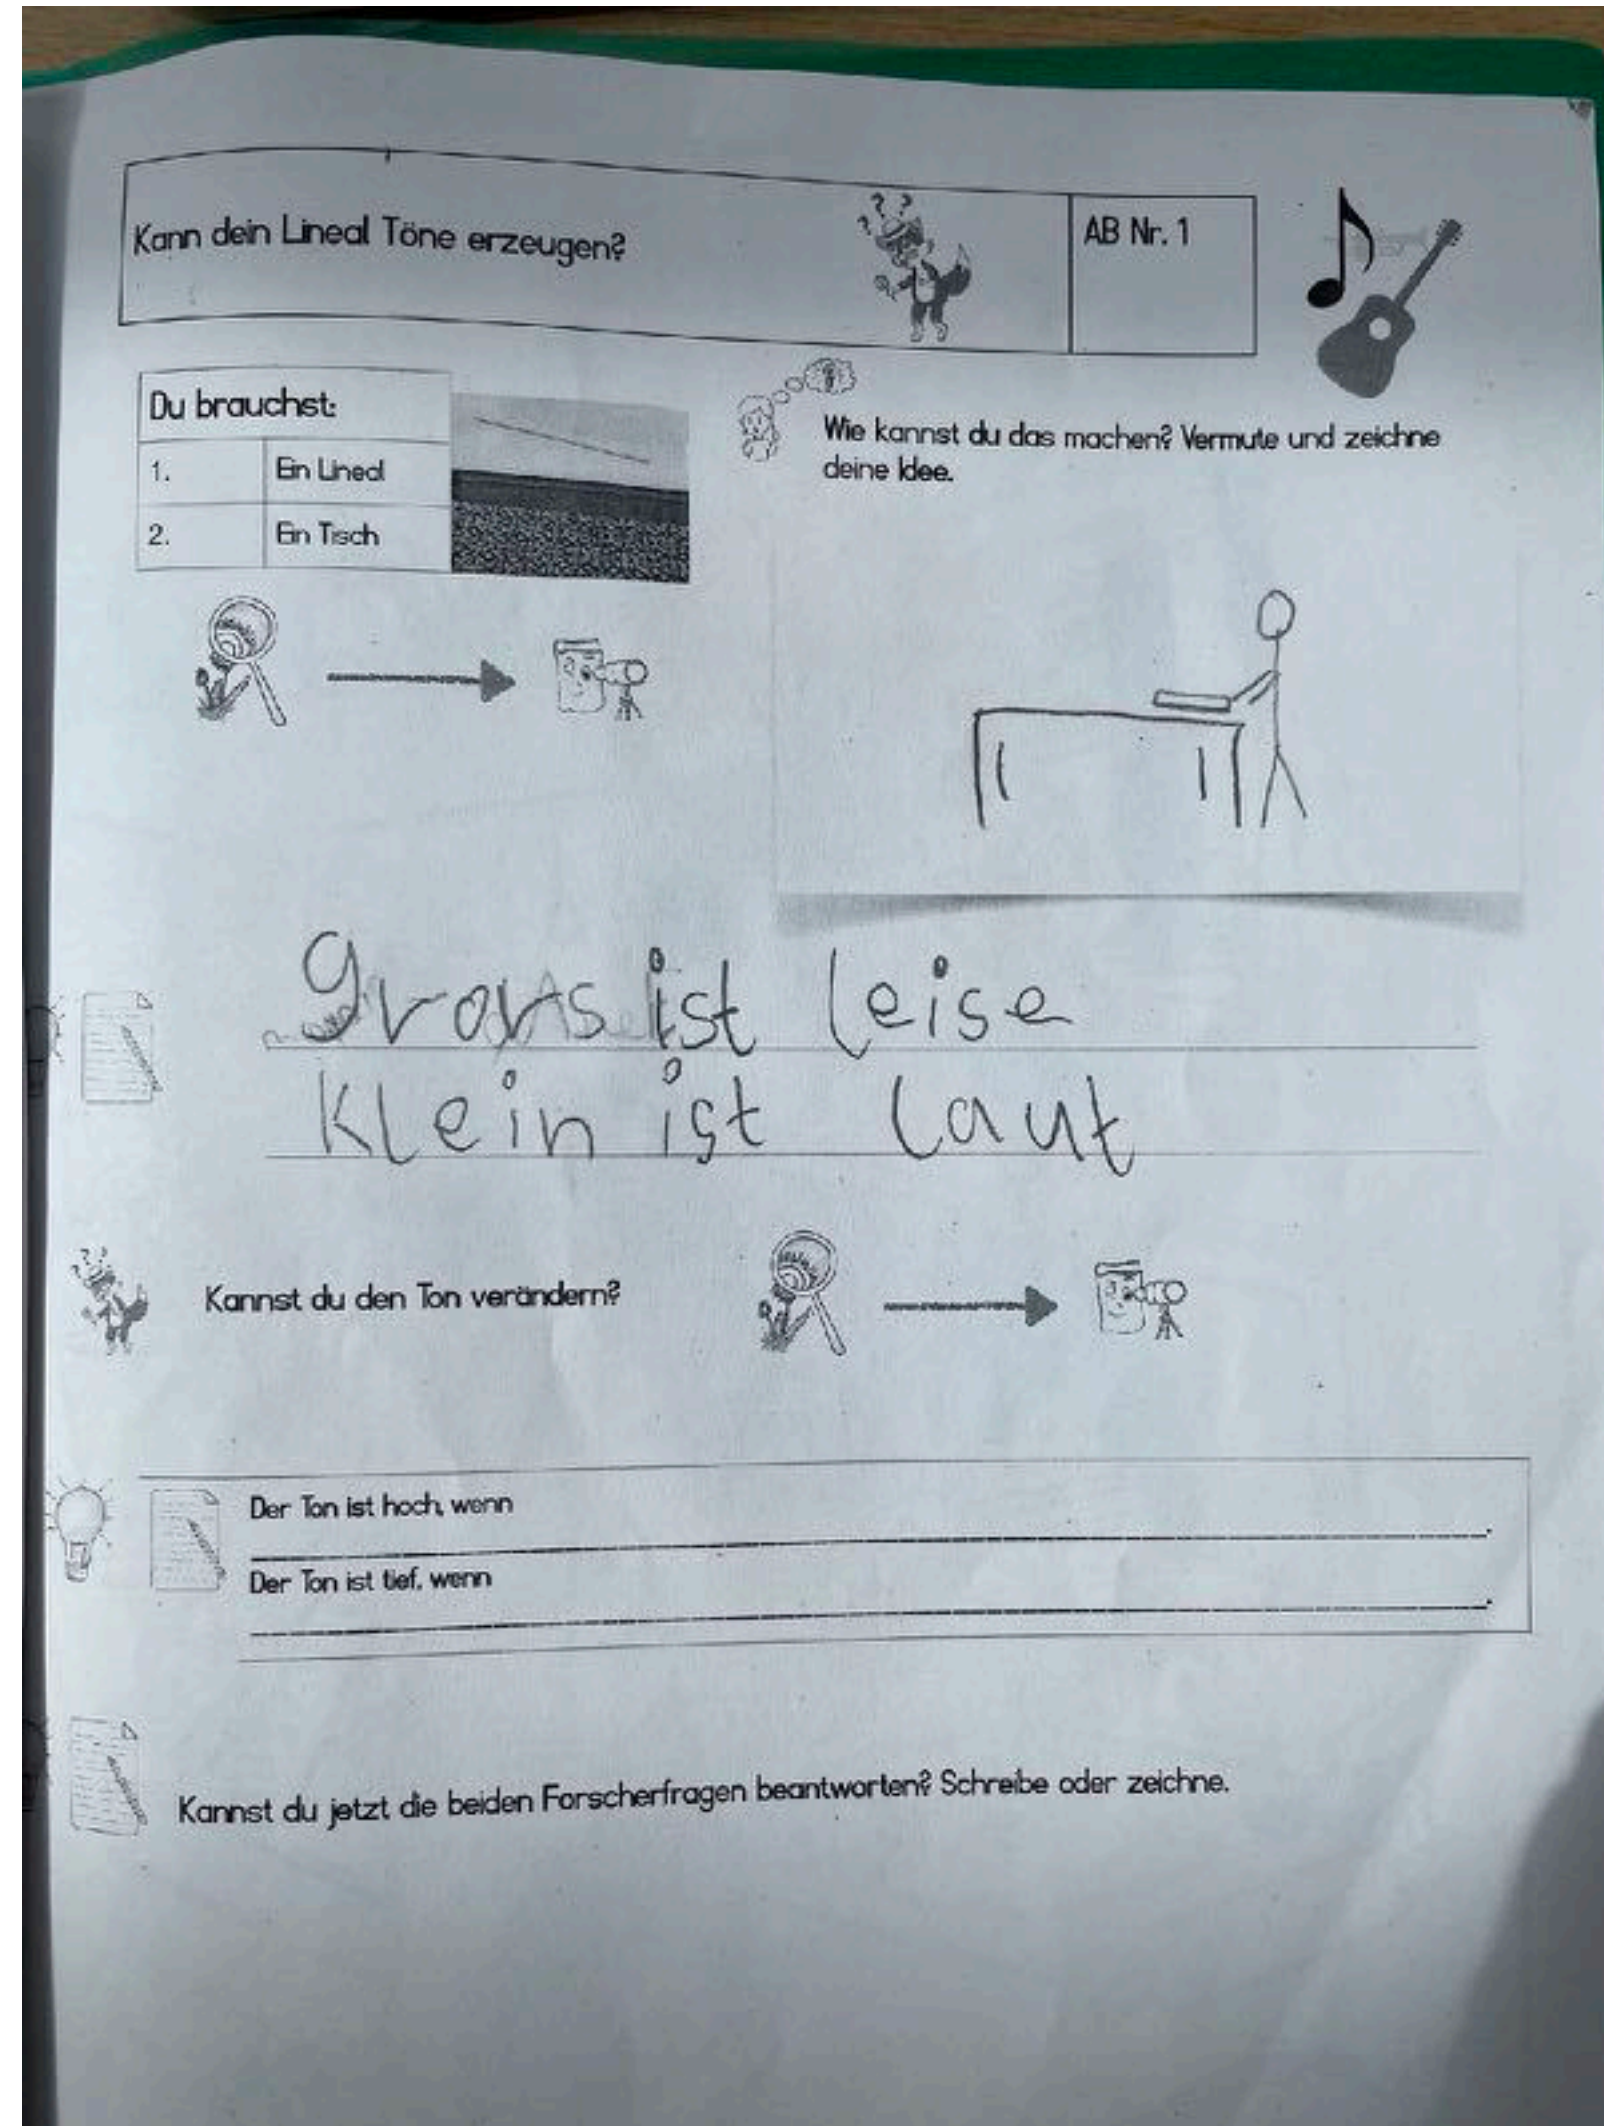 Kann dein Lineal Töne erzeugen?
AB Nr. 1
Du brauchst:
1. Ein Lineal
2. Ein Tisch
Wie kannst du das machen? Vermute und zeichne
deine Idee.
ist leise
Klein ist laut
Kannst du den Ton verändern?
Der Ton ist hoch, wenn
Der Ton ist tief, wenn
Kannst du jetzt die beiden Forscherfragen beantworten? Schreibe oder zeichne.